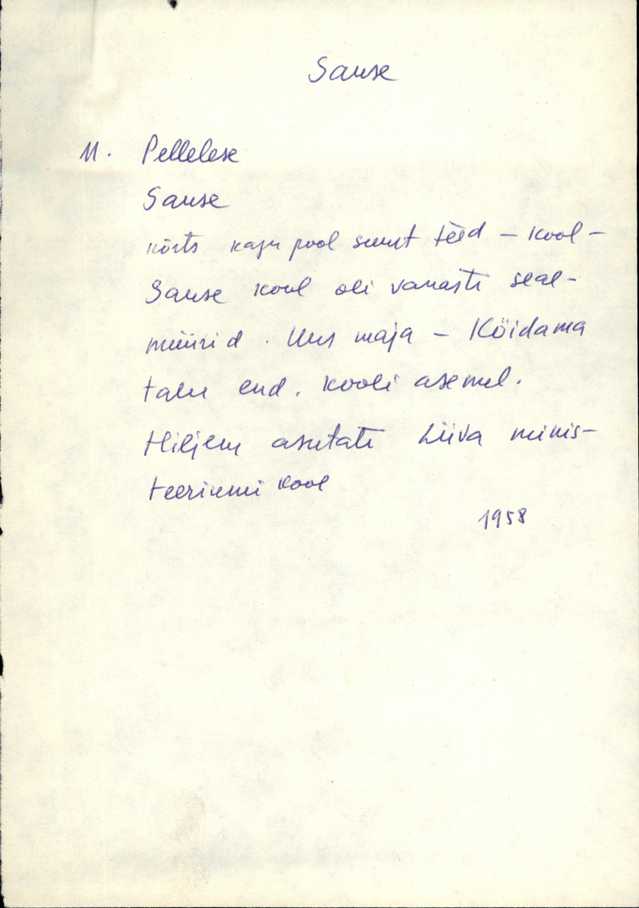 Sause
M. Pellelese
Sause
kõrts kagu pool suurt tèed – kool –
Sause kool oli vanasti seal –
müürid. Uus maja – Köidama
talu end. kooli asemel.
Hiljem asutati Liiva minis-
teeriumi kool
1958